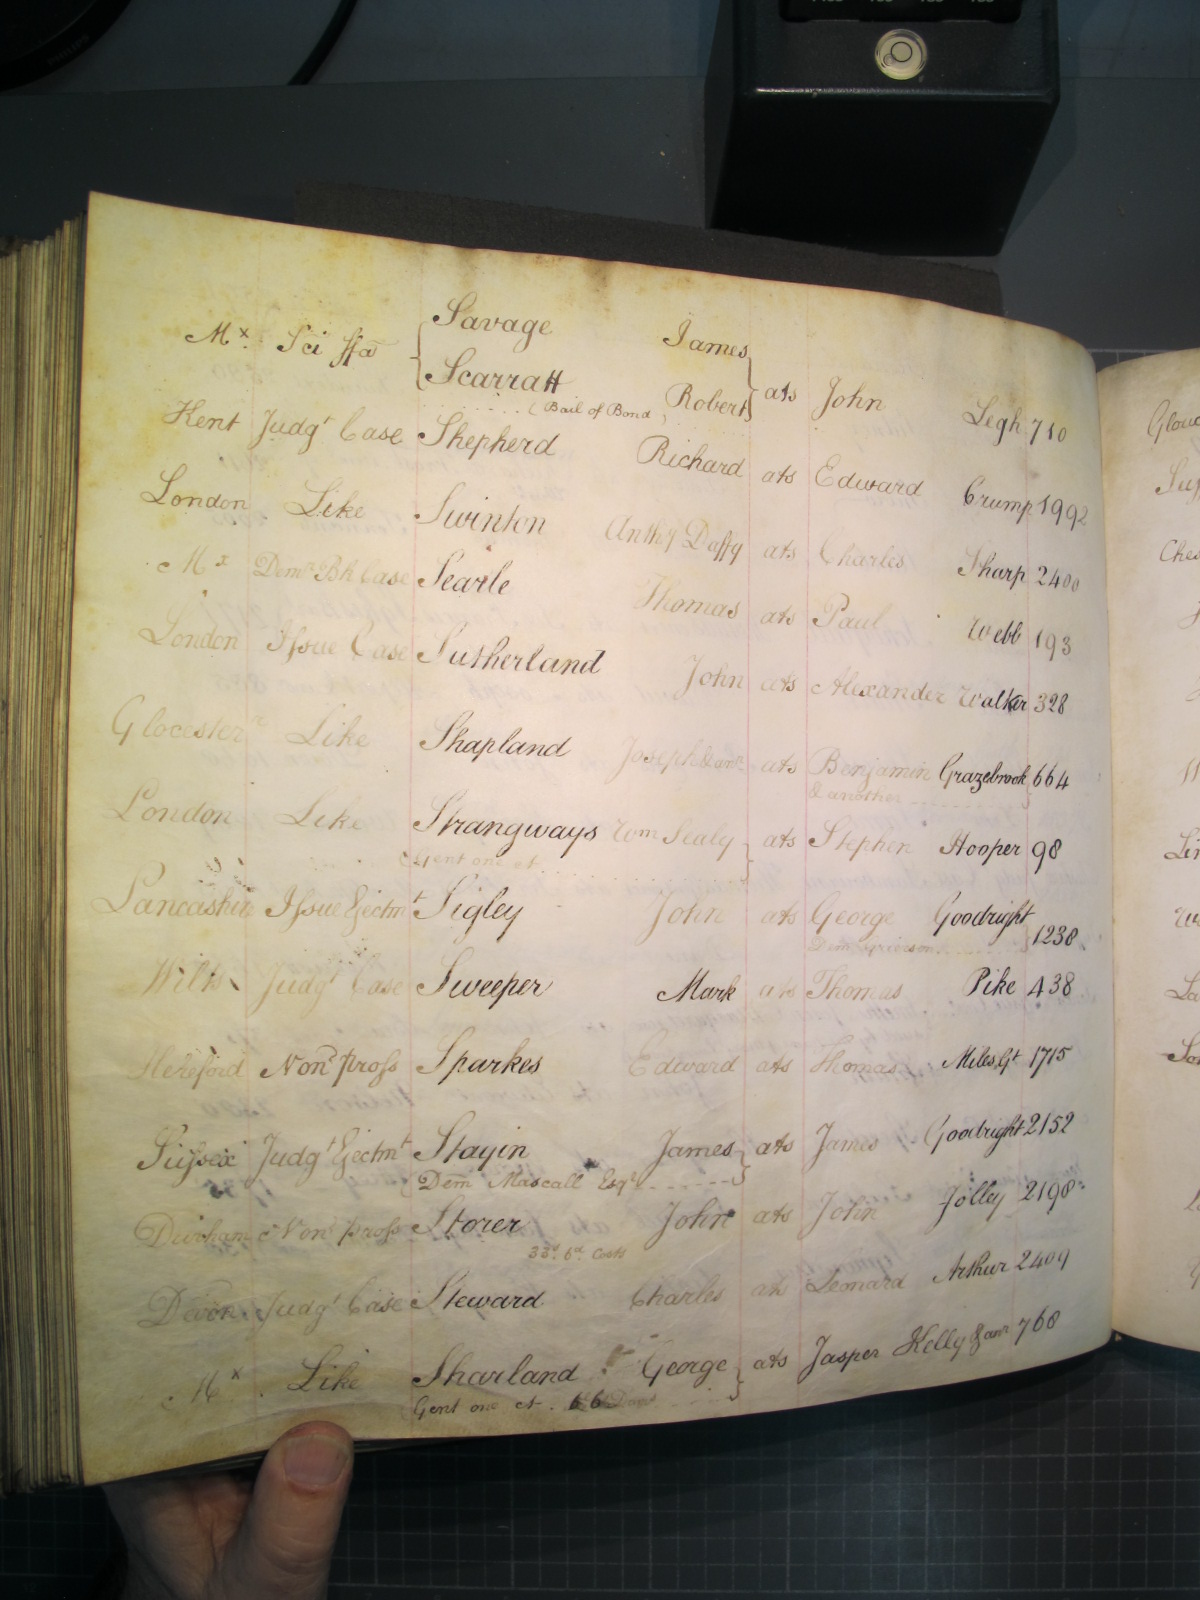 Mx Sci ffa Savage James
Scarratt Robert ats John Legh 710
(Bail of Bond)
Kent Judgt Case Shepherd Richard ats Edward Crump 1992
London Like Swinton Anthy Daffy ats Charles Sharp 2400
Mx Demr Bk Case Searle Thomas ats Paul Webb 193
London Issue Case Sutherland John ats Alexander Walker 328
Glocester Like Shapland Joseph & anr ats Benjamin Grazebrook 664
& another
London Like Strangways Wm Sealy ats Stephen Hooper 98
Gent one et
Lancashire Issue Ejectmt Sigley John ats George Goodright 1238
Wilts Judgt Case Sweeper Mark ats Thomas Pike 438
Hereford Nonr pross Sparkes Edward ats Thomas Miles Gt 1715
Sussex Judgt Ejectmt Stayin James ats James Goodright 2152
Dem Mascall Esqr
Durham Nonr pross Storer John ats John Jolley 2198
33s. 6d. Costs
Devon Judgt Case Steward Charles ats Leonard Arthur 2409
Mx Like Sharland George ats Jasper Kelly & anr 768
Gent one et